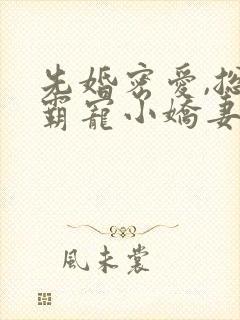 先婚密愛,總
霸寵小嬌妻
風未裳